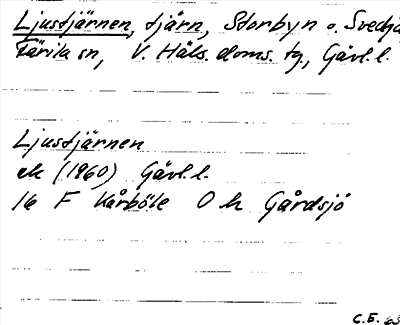 Ljustjärnen, tjärn, Storbyn o. Svedja
Färila sn, V. Häls. doms. tg., Gävl.l.
Ljustjärnen
ek (1960) Gävl.l.
16 F Kårböle O h Gårdsjö
C.E.